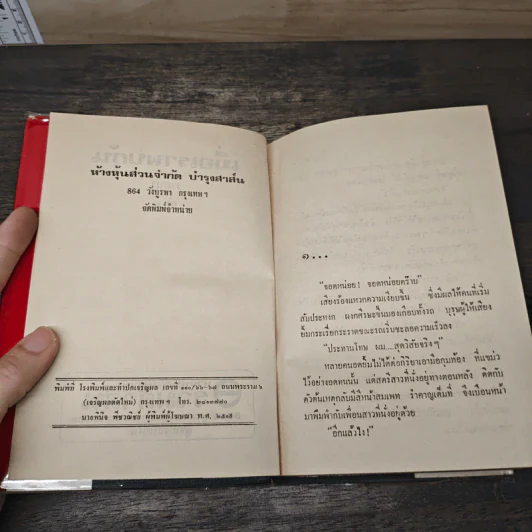 ห้างหุ้นส่วนจำกัด บำรุงสาส์น
864 วังบูรพา กรุงเทพฯ
จัดพิมพ์จำหน่าย
พิมพ์ที่ โรงพิมพ์และทำปกเจริญผล เลขที่ ถนนพระราม ๖
(เจริญผลตัดใหม่) กรุงเทพฯ โทร.
ผู้พิมพ์ผู้โฆษณา พ.ศ.
๑...
"จอดหน่อย! จอดหน่อยคร๊าบ"
เสียงร้องแหวกความเงียบขึ้น ซึ่งมีผลให้คนที่เริ่ม
สัปหงก ผงกศีรษะขึ้นมองเกือบทั้งรถ บุรุษผู้ให้เสียง
ยิ้มกระเรี่ยกระราดขณะรถเริ่มชะลอความเร็วลง
"ประทานโทษ ผม...สุดวิสัยจริงๆ"
หลายคนอดยิ้มไม่ได้ต่อกิริยาเอามือกุมท้อง ที่แขม่ว
ไว้อย่างอดทนนั้น แต่สตรีสาวที่นั่งอยู่ทางตอนหลัง ติดกับ
ตัวต้นเหตุกลับมีสีหน้าสมเพช รำคาญเต็มที่ จึงเบือนหน้า
มาพึมพำกับเพื่อนสาวที่นั่งอยู่ด้วย
"อีกแล้วไง!"